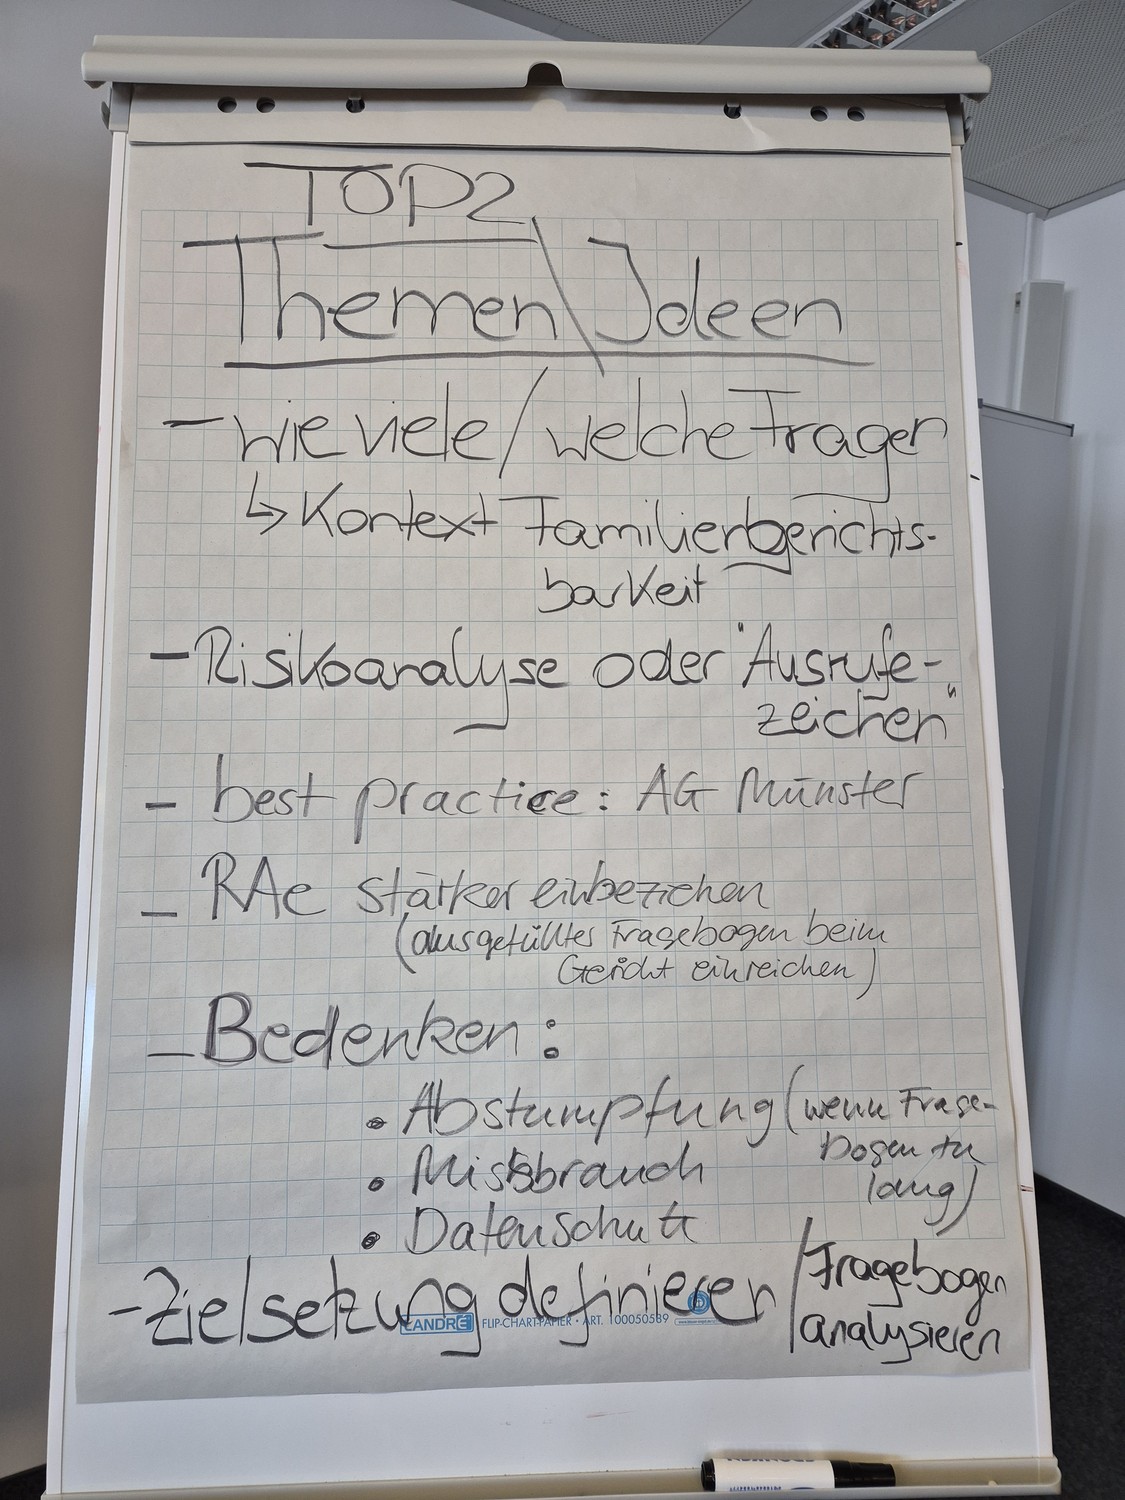 TOP2
Themen\Ideen
- wie viele / welche Fragen
↳ Kontext Familiengerichts-
barkeit
- Risikoanalyse oder "Ausrufe-
zeichen"
- best practice: AG Münster
- RAe stärker einbeziehen
(ausgefülltes Fragebogen beim
Gericht einreichen)
- Bedenken:
• Abstumpfung (wenn Frage-
bogen zu
lang)
• Missbrauch
• Datenschutz
- Zielsetzung definieren / Fragebogen
analysieren
LANDRÉ FLIP-CHART-PAPIER • ART. 100050589